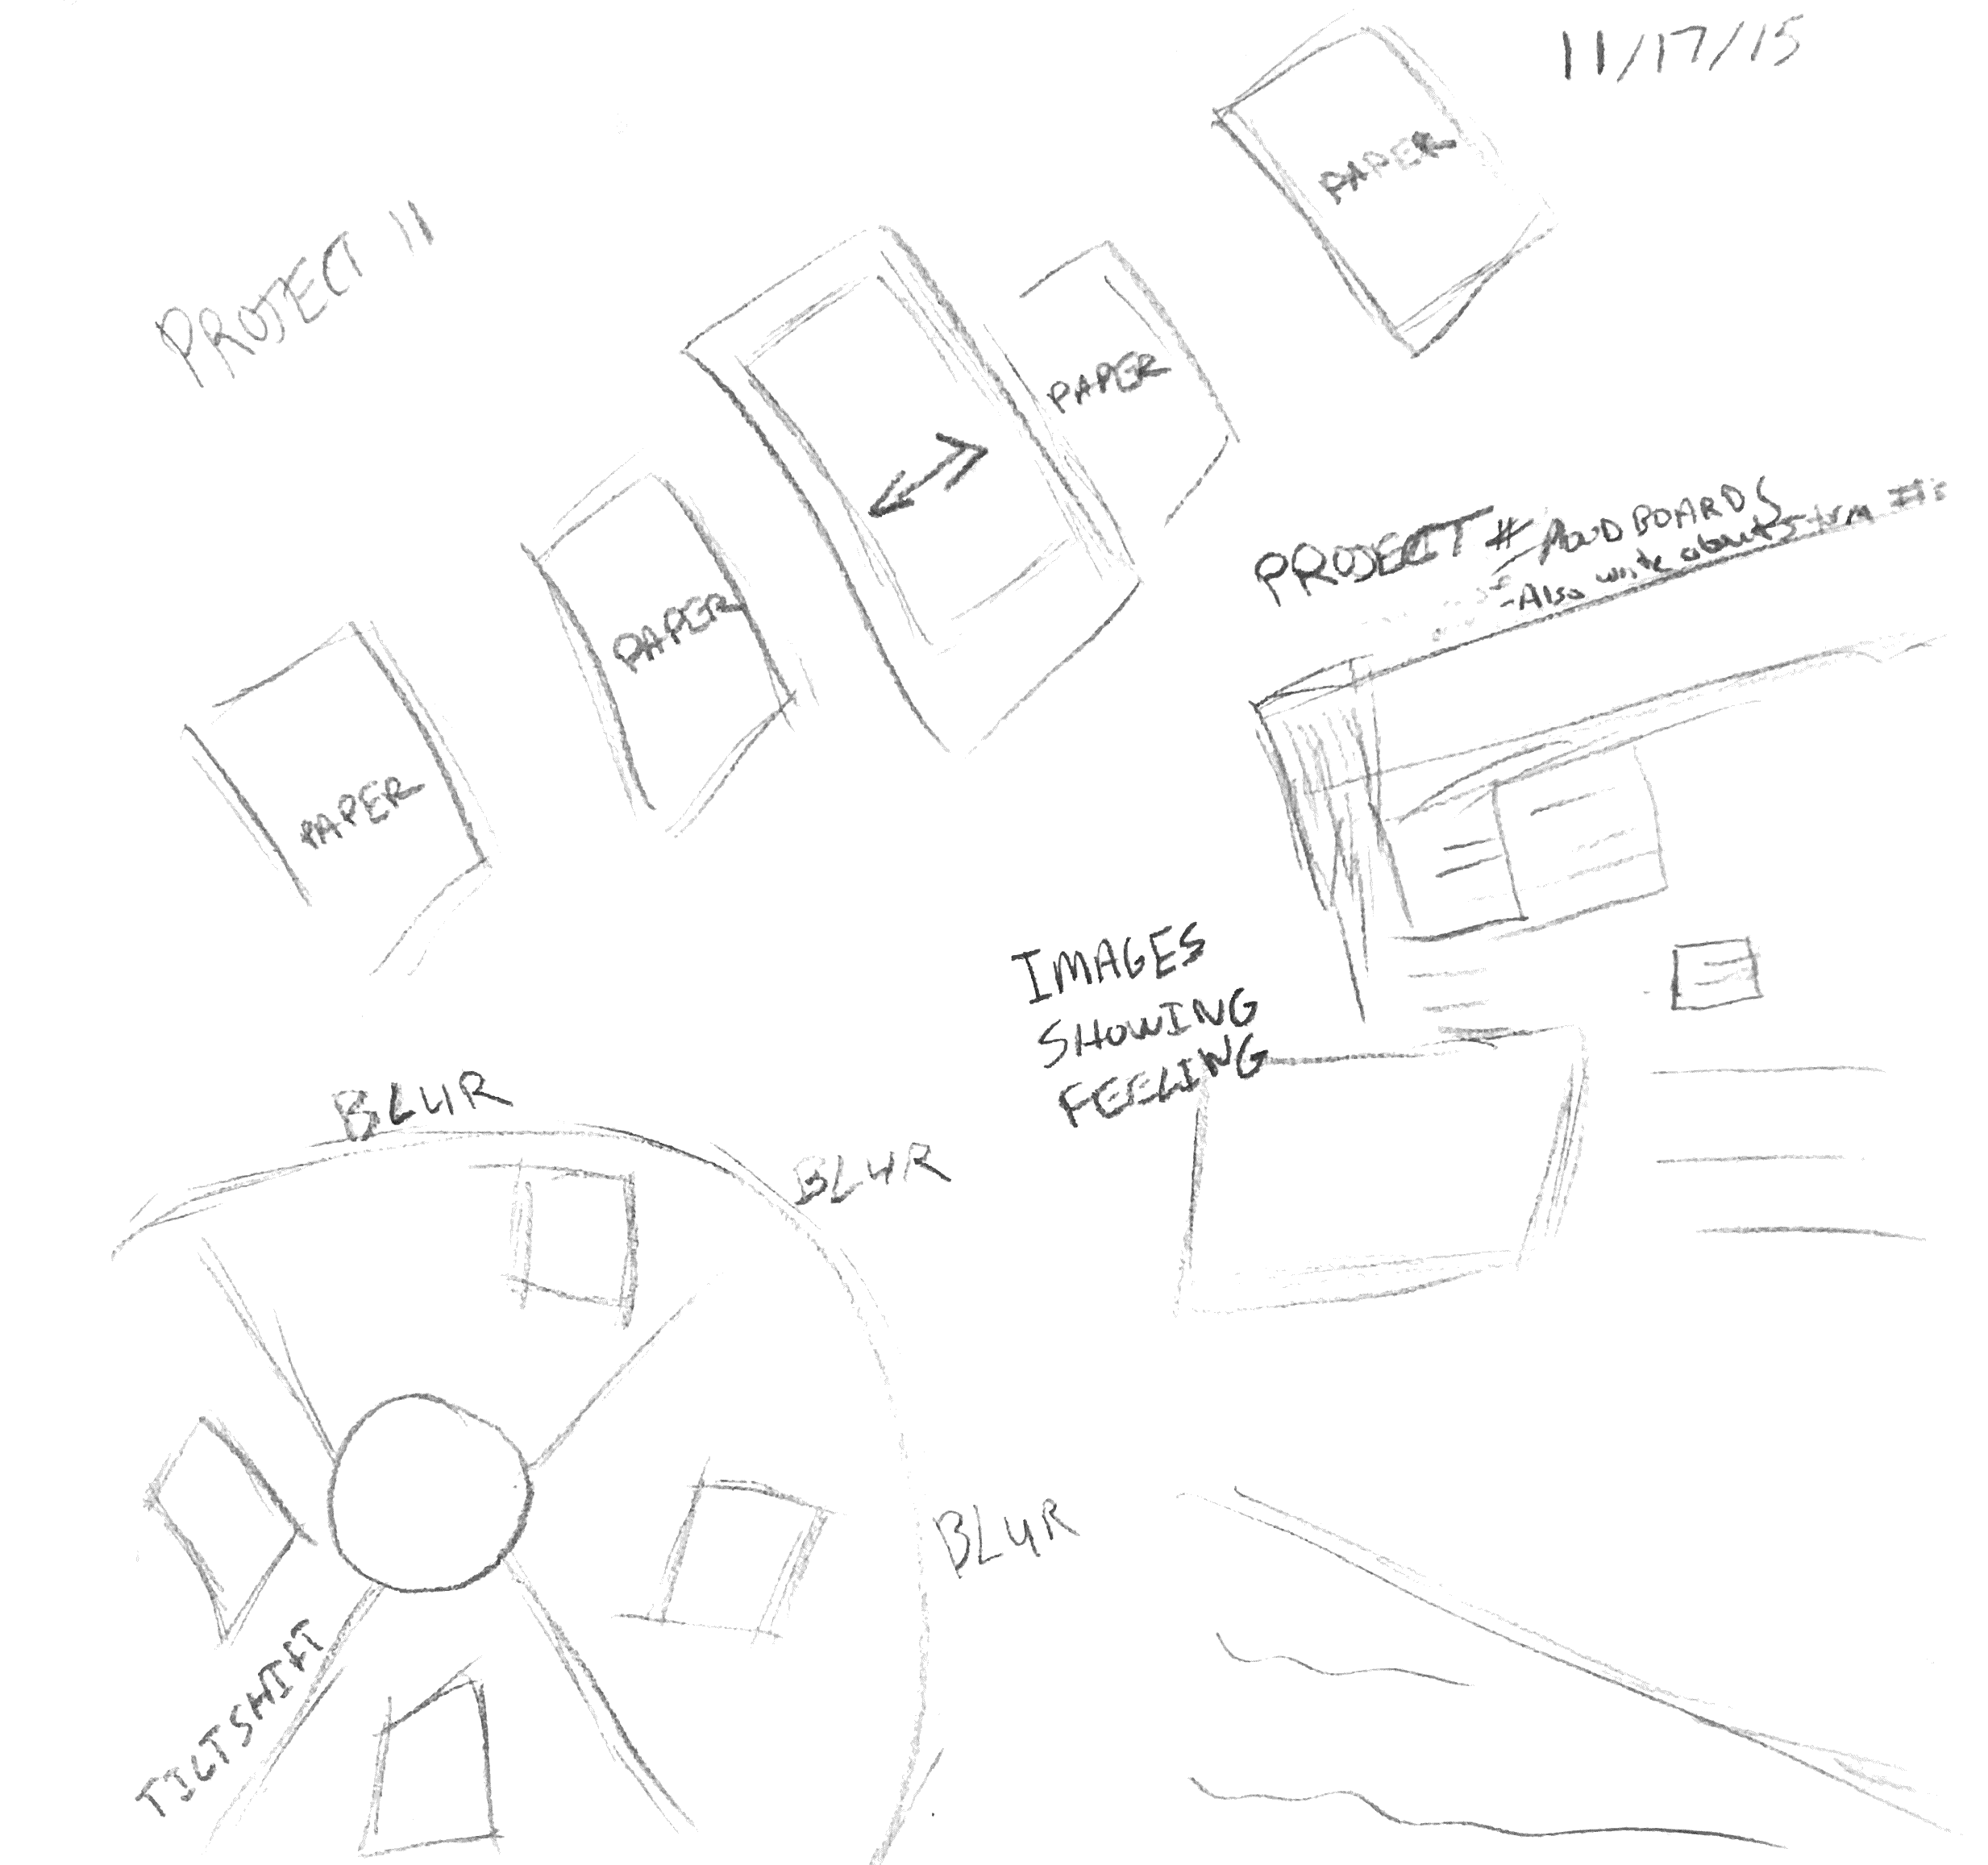 11/17/15
PAPER
PROJECT 11
PAPER
PAPER
PAPER
PROJECT # MOODBOARDS
-Also write about
IMAGES
SHOWING
FEELING
BLUR
BLUR
BLUR
TILTSHIFT